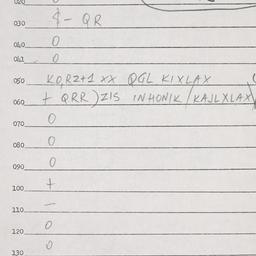 020
030 $- QR
040 0
041 0
050 KO,RZ+1 XX QGL KIXLAX
+ QRR)ZIS INHONIK/KAJLXLAX
070 0
080 0
090 0
100 +
110 -
120 0
130 0